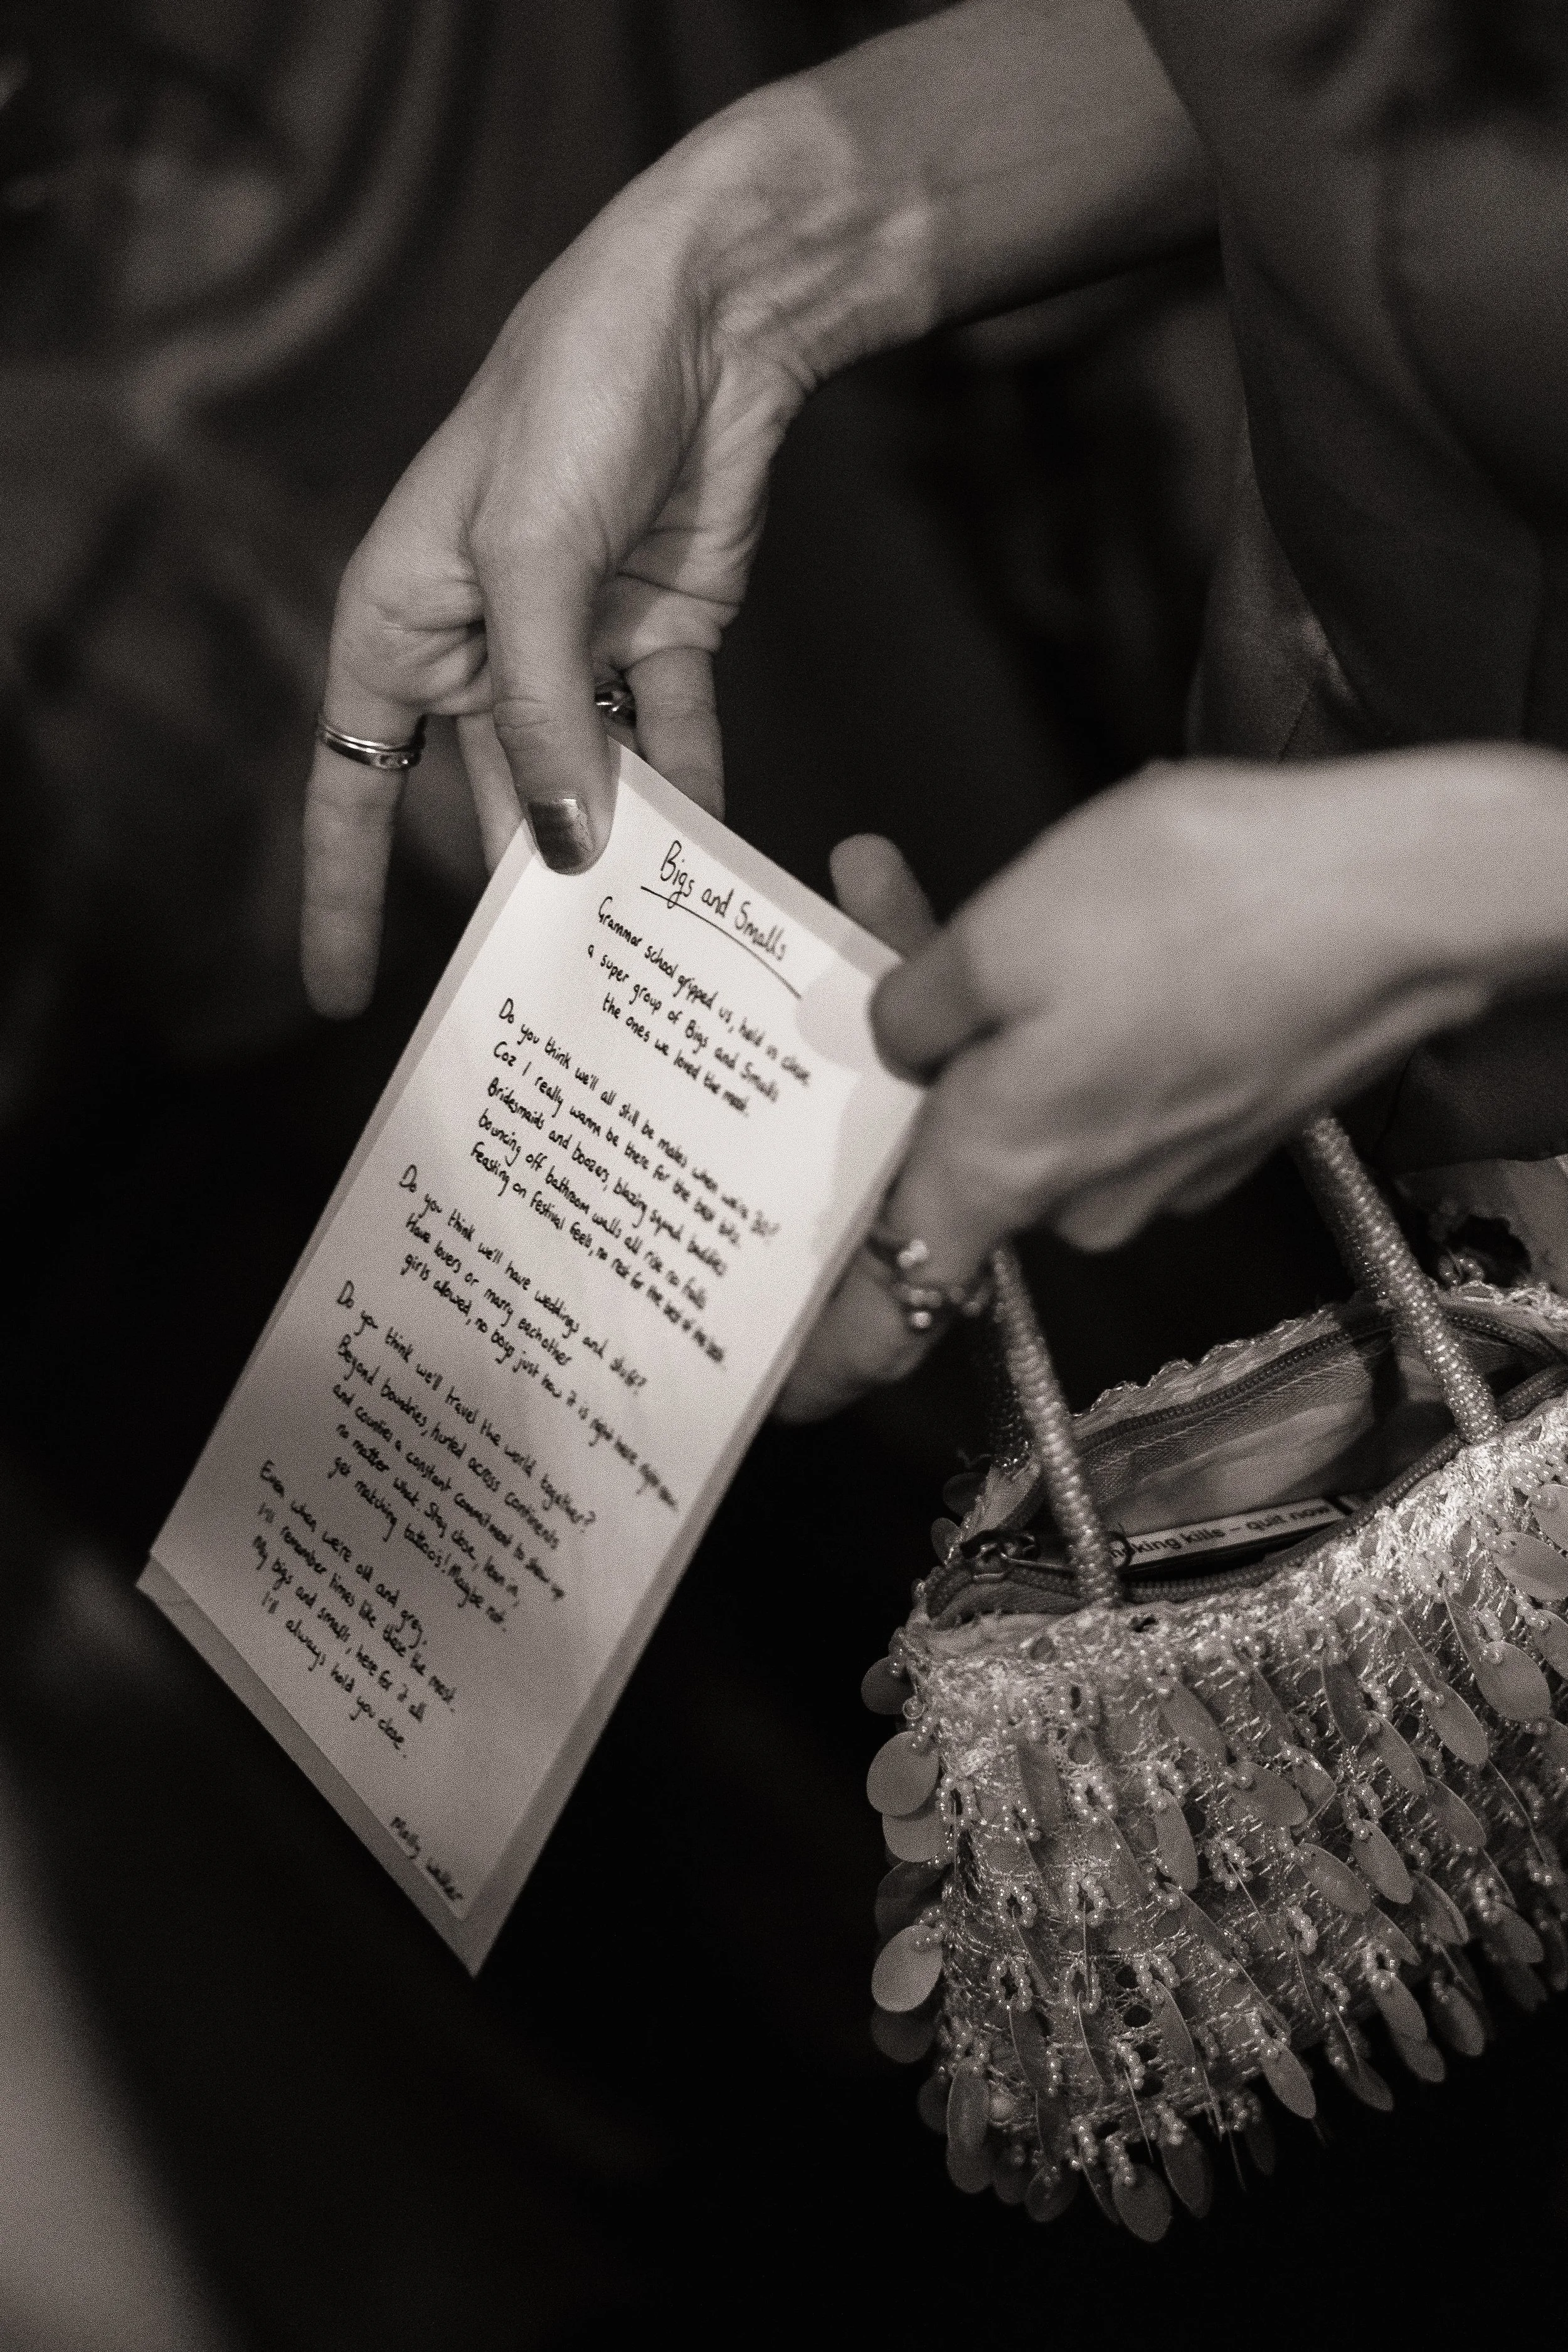 Bigs and Smalls
Grammar school gripped us, held us close,
a super group of Bigs and Smalls
the ones we loved the most.
Do you think we'll all still be mates when we're 30?
Coz I really wanna be there for the best bits.
Bridesmaids and boozers, blazing squad buddies
bouncing off bathroom walls all rise no falls
Feasting on festival feels, no rest for the best of the
Do you think we'll have weddings and stuff?
Have lovers or marry eachother
girls allowed, no boys just how it is right here
Do you think we'll travel the world together?
Beyond boundries, hurled across continents
and counties a constant commitment to show up
no matter what. Stay close, lean in,
get matching tattoo's! Maybe not.
Even when we're old and grey,
I'll remember times like these the most.
My bigs and smalls, here for it all
I'll always hold you close.
Molly
king kills – quit now